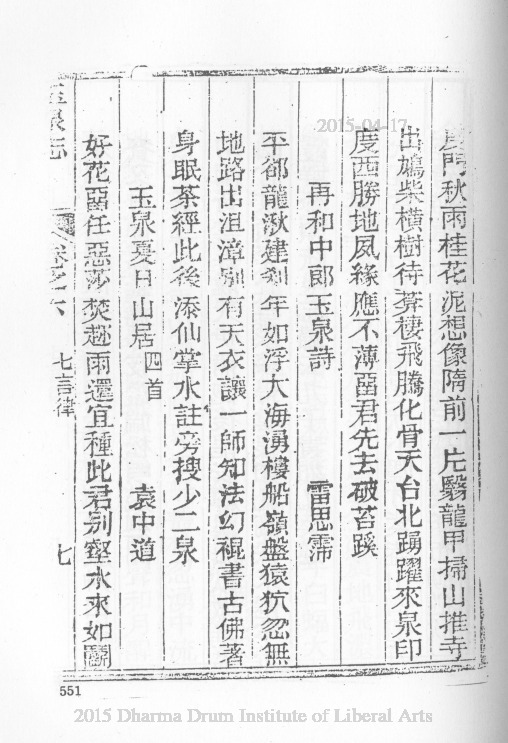 度門秋雨桂花泥想像隋前一片翳龍甲掃山推寺
出鳩柴橫樹待莾棲飛騰化骨天台北踴躍來泉印
度西勝地夙緣應不薄畱君先去破苔蹊
再和中郎玉泉詩 雷思霈
平郤龍湫建剎年如浮大海湧樓船嶺盤猿狖忽無
地路出沮漳別有天衣讓一師知法幻裩書古佛著
身眠茶經此後添仙掌水註旁搜少二泉
玉泉夏日山居四首 袁中道
好花畱任惡莎焚趂雨還宜種此君別壑水來如鬬
玉泉志 卷之六 七言律 七
551
2015-04-17
2015 Dharma Drum Institute of Liberal Arts